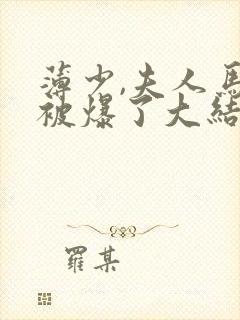 薄少,夫人馬
被爆了大結
羅某